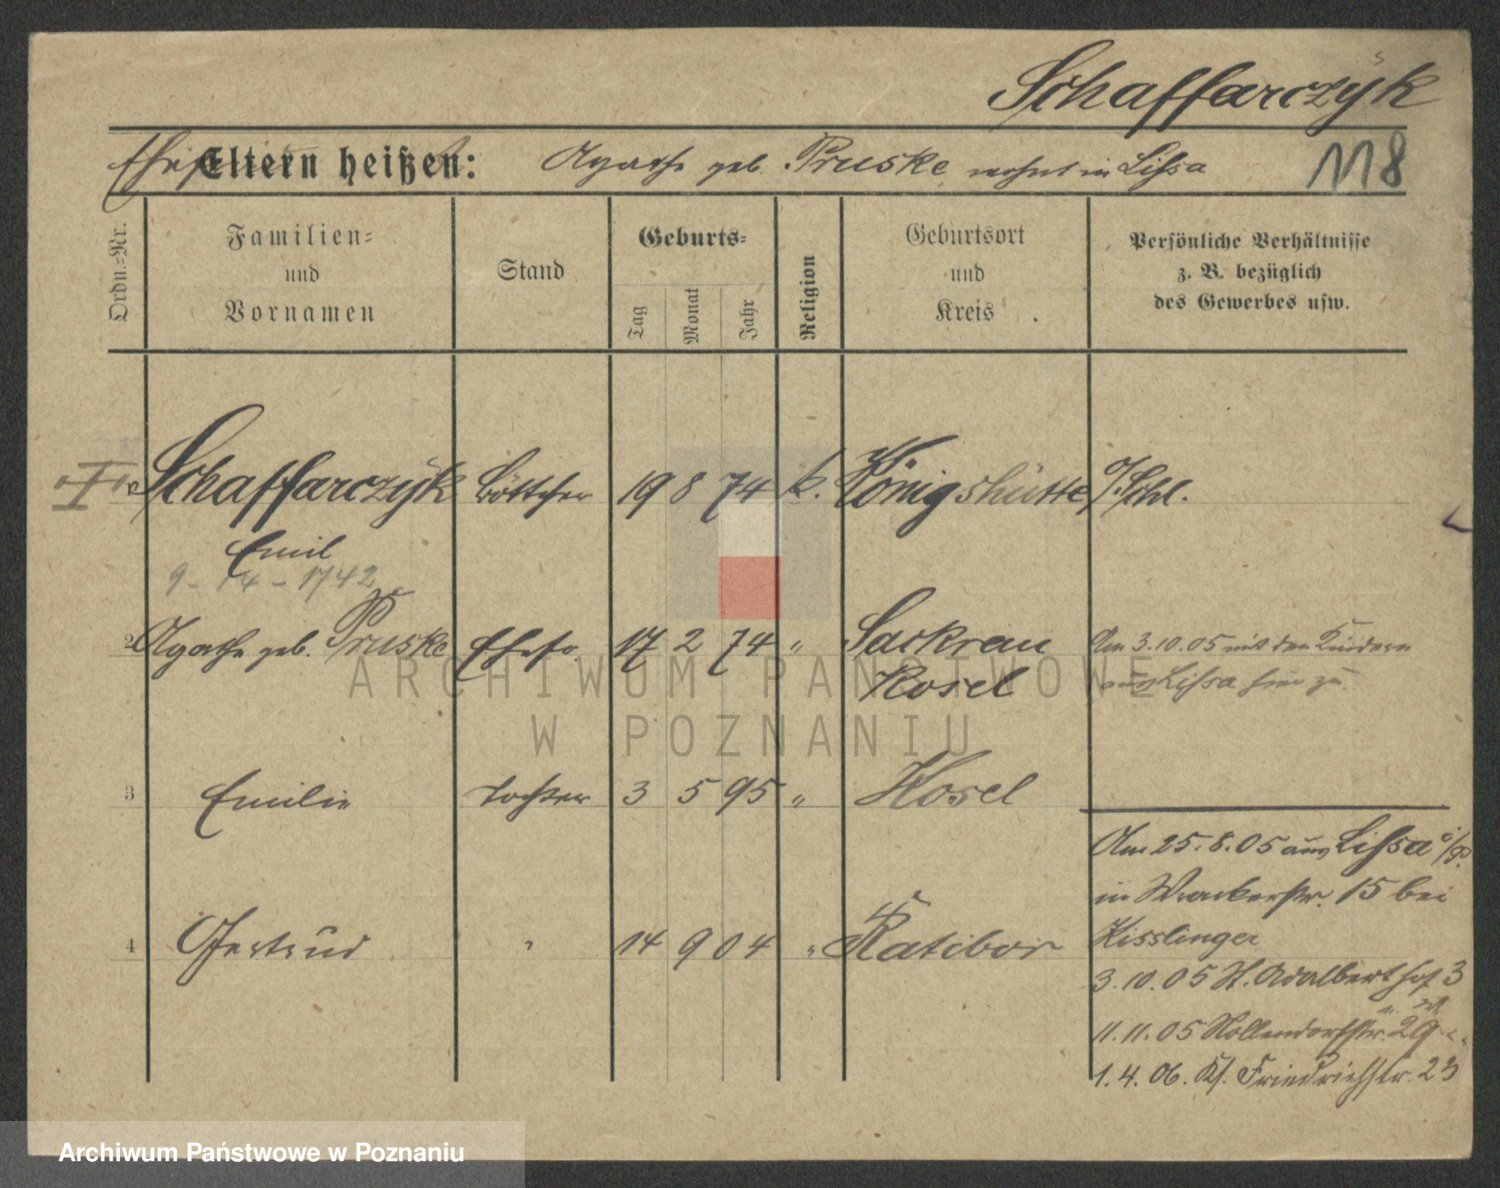 Schaffarczyk
Ehefr. Eltern heißen: Agathe geb. Pruske, wohnt in Lissa 118
Ordn.=Nr.
Familien=
und
Vornamen
Stand
Geburts=
Tag
Monat
Jahr
Religion
Geburtsort
und
Kreis
Persönliche Verhältnisse
z. B. bezüglich
des Gewerbes usw.
Schaffarczyk Böttcher 19 8 74 k. Königshütte O/Schl.
Emil
9 - 14 - 1742
2 Agathe geb. Pruske Ehefr. 17 2 74 " Sackrau Am 3.10.05 mit den Kindern
Kosel aus Lissa hier zu.
3 Emilie Tochter 3 5 95 " Kosel
Am 25.8.05 aus Lissa i/P.
in 15 bei
Kisslinger
4 Gertrud " 14 9 04 " Ratibor
3.10.05 St. Adalberthof 3
11.11.05 Nollendorfstr. 29
1.4.06. Kl. Friedrichstr. 23
ARCHIWUM PAŃSTWOWE
W POZNANIU
Archiwum Państwowe w Poznaniu